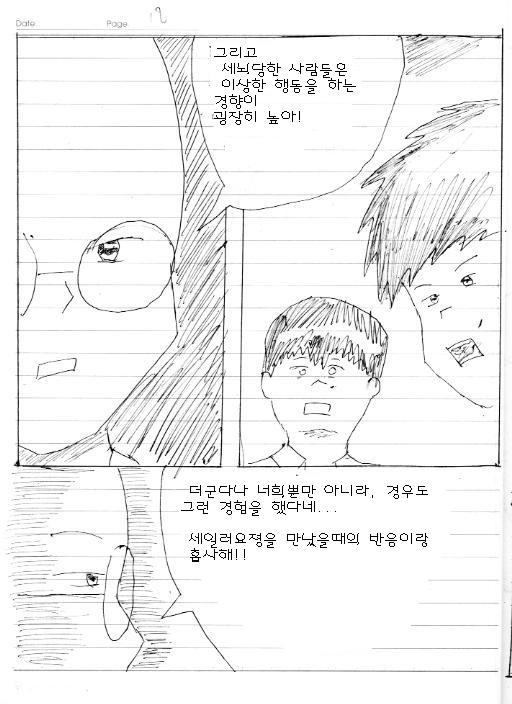 Date
Page
12
그리고
세뇌당한 사람들은
이상한 행동을 하는
경향이
굉장히 높아!
더군다나 너희뿐만 아니라, 경우도
그런 경험을 했다네...
세일러요정을 만났을때의 반응이랑
흡사해!!